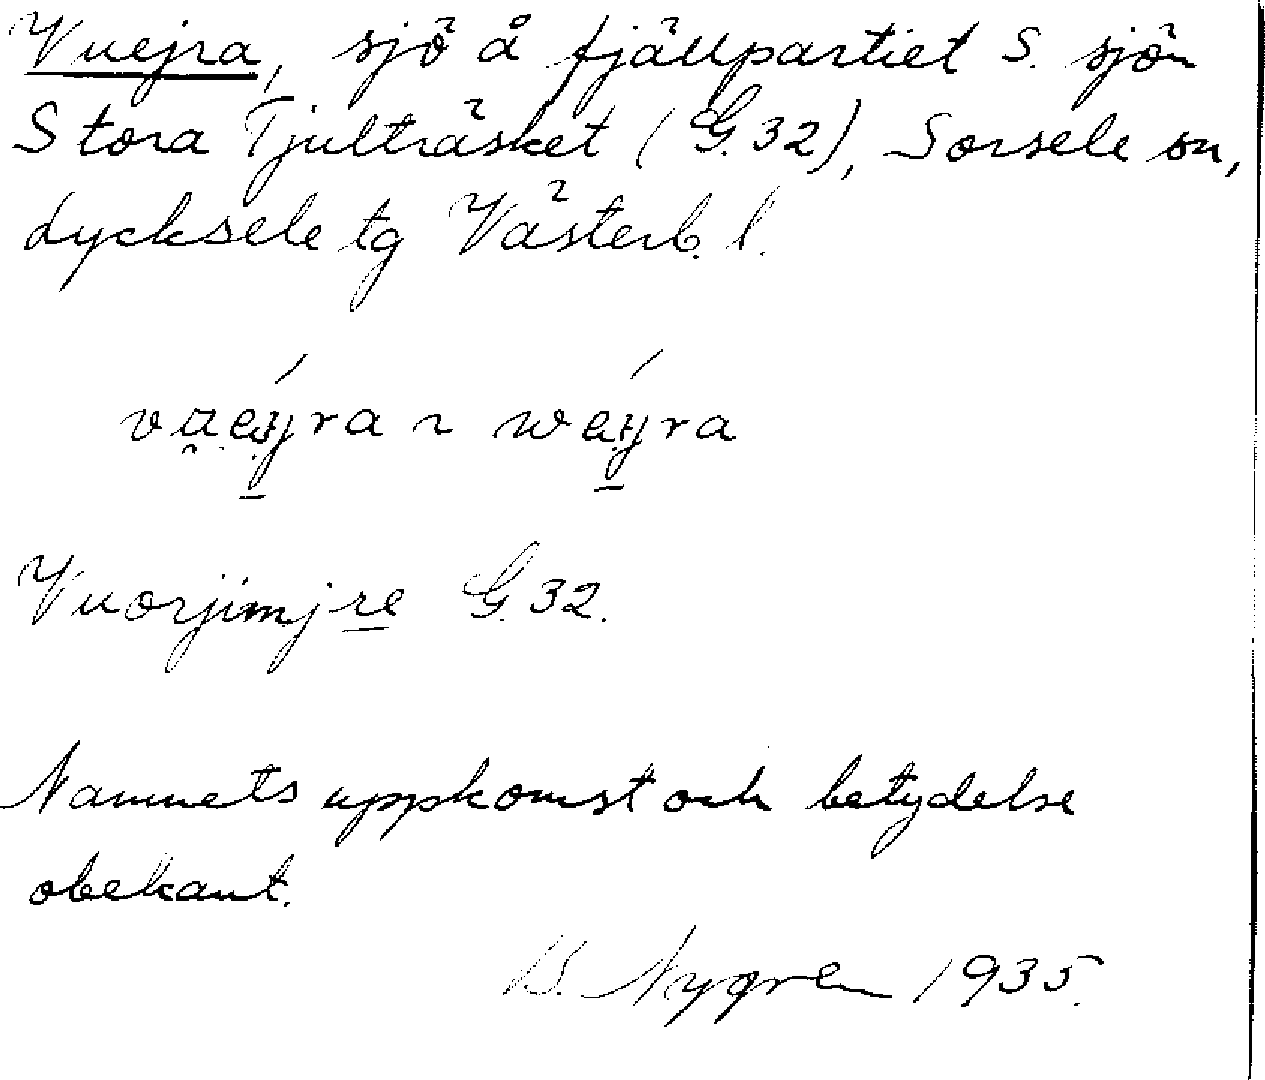 Vuejra, sjö å fjällpartiet S. sjön
Stora Tjulträsket (G. 32), Sorsele sn,
Lycksele tg Västerb. l.
Vuorjimjre G. 32.
Namnets uppkomst och betydelse
obekant.
Nygren 1935.